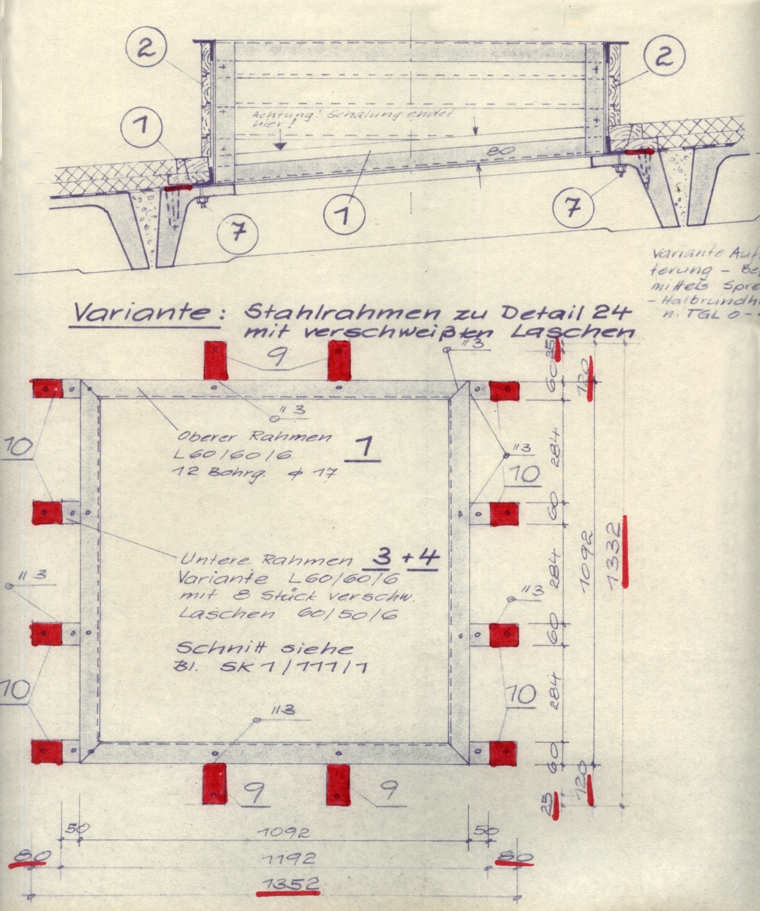 2
2
1
Achtung! Schalung endet
hier!
80
7
1
7
Variante
terung –
mittels
n. TGL 0-
Variante: Stahlrahmen zu Detail 24
mit verschweißten Laschen
9
"3
25
60
120
"3
10
Oberer Rahmen 1
L60/60/6
12 Bohrg. ϕ 17
"3
10
284
60
Untere Rahmen 3+4
Variante L60/60/6
mit 8 Stück verschw.
Laschen 60/50/6
284
1092
1332
"3
"3
60
Schnitt siehe
Bl. SK 1/111/1
10
10
284
"3
60
120
9
9
25
50
1092
50
80
1192
80
1352